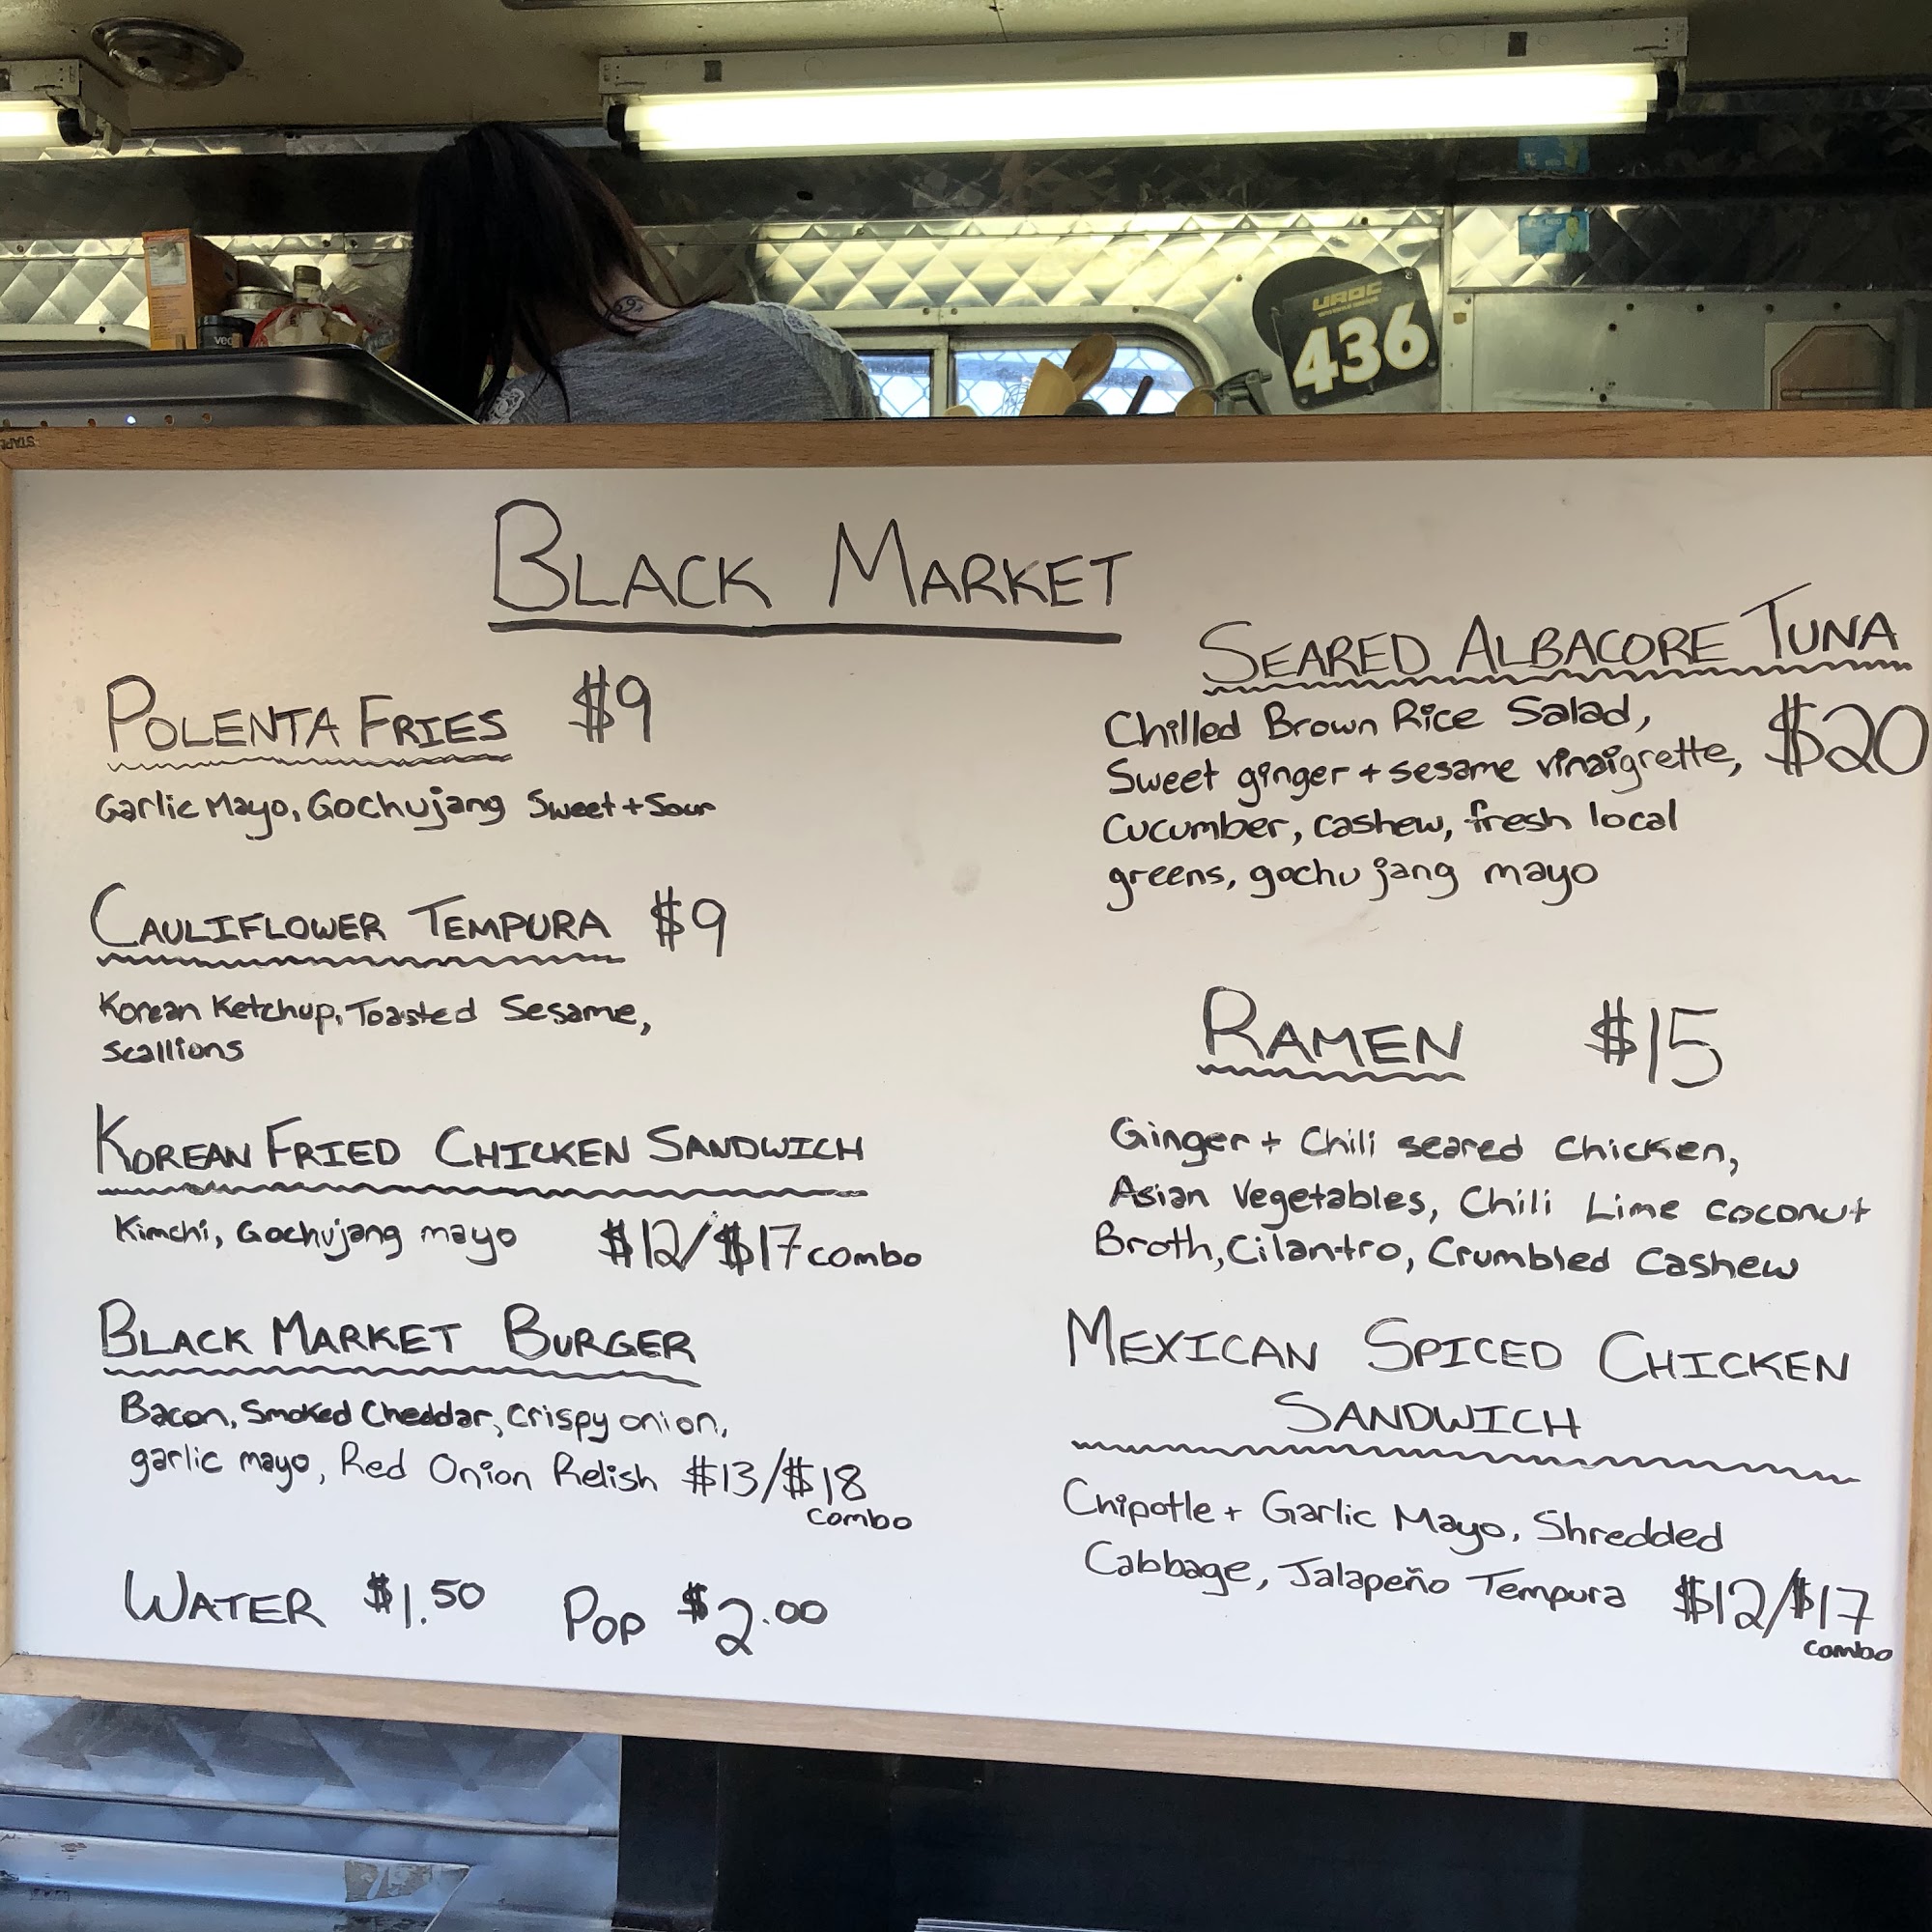 UROC
436
BLACK MARKET
POLENTA FRIES $9
Garlic Mayo, Gochujang Sweet + Sour
CAULIFLOWER TEMPURA $9
Korean Ketchup, Toasted Sesame,
Scallions
KOREAN FRIED CHICKEN SANDWICH
Kimchi, Gochujang mayo $12/$17 combo
BLACK MARKET BURGER
Bacon, Smoked Cheddar, Crispy onion,
garlic mayo, Red Onion Relish $13/$18
combo
WATER $1.50 POP $2.00
SEARED ALBACORE TUNA
Chilled Brown Rice Salad,
Sweet ginger + sesame vinaigrette, $20
Cucumber, cashew, fresh local
greens, gochujang mayo
RAMEN $15
Ginger + Chili seared Chicken,
Asian Vegetables, Chili Lime coconut
Broth, Cilantro, Crumbled Cashew
MEXICAN SPICED CHICKEN
SANDWICH
Chipotle + Garlic Mayo, Shredded
Cabbage, Jalapeño Tempura $12/$17
combo